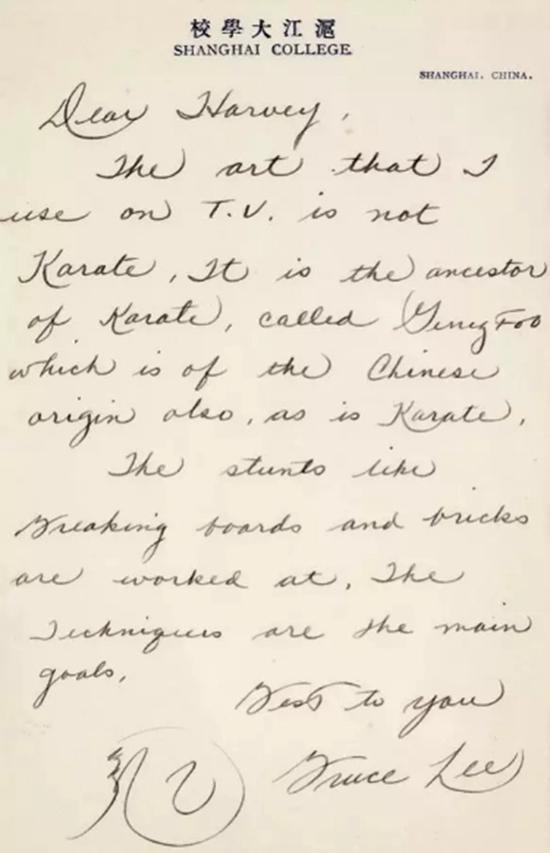 滬江大學校
SHANGHAI COLLEGE
SHANGHAI. CHINA.
Dear Harvey,
The art that I
use on T.V. is not
Karate, It is the ancestor
of Karate, called Gung Foo
which is of the Chinese
origin also, as is Karate,
The stunts like
Breaking boards and bricks
are worked at, The
Techniques are the main
goals,
Best to you
Bruce Lee